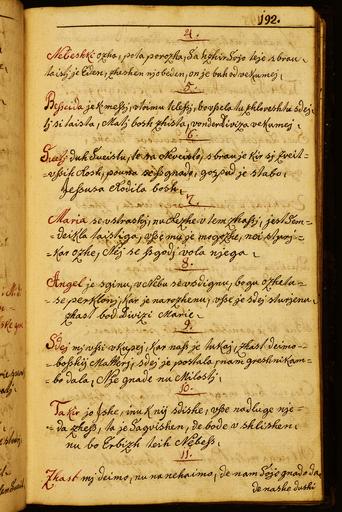 192.
4.
Nebeshki ozha, pota porozha, Sa
taisti je Eden, zhesken njobeden, on je buh od vekumej.
5.
Beseida je k messi, vtoimu telessi,
ti si taista, Mati bosh zhista, vonder Diviza vekumej.
6.
Sveti duh Sveistu, te na Neveisto, s bran je kir sj Zveit-
Rosh, gnade, gospud je stabo,
Jessusa Rodila bosh.
7.
Maria se vstrashi, nu Rezhe v tem zhassi, jest Dem-
deikla taistiga, vsse mu je mogozhe, noi stvarj-
kar ozhe, Nej se sgodj vola njega.
8.
Angel je sginu, v Nebu se vsdignu, bogu ozheta-
se perklonj, kar je narozhenu, vsse je sdej sturjenu
zhast bod Divizi Marie.
9.
Sdej mj vsi vkupej, kar nass je tukaj, zhast deimo-
bosshij Matterj, sdej je postala, nam greshnikam-
bo dala, Nje gnade nu Milostj.
10.
Takir jo Ishe, nu k nij sdishe, vsse nadluge nje-
da zhess, ta je Sagvishen, de bode v shlishen
nu bo Erbizh teih Nebess.
11.
Zhast mj deimo, nu nanehaimo, de nam Soje gnado da,
de nashe dushi